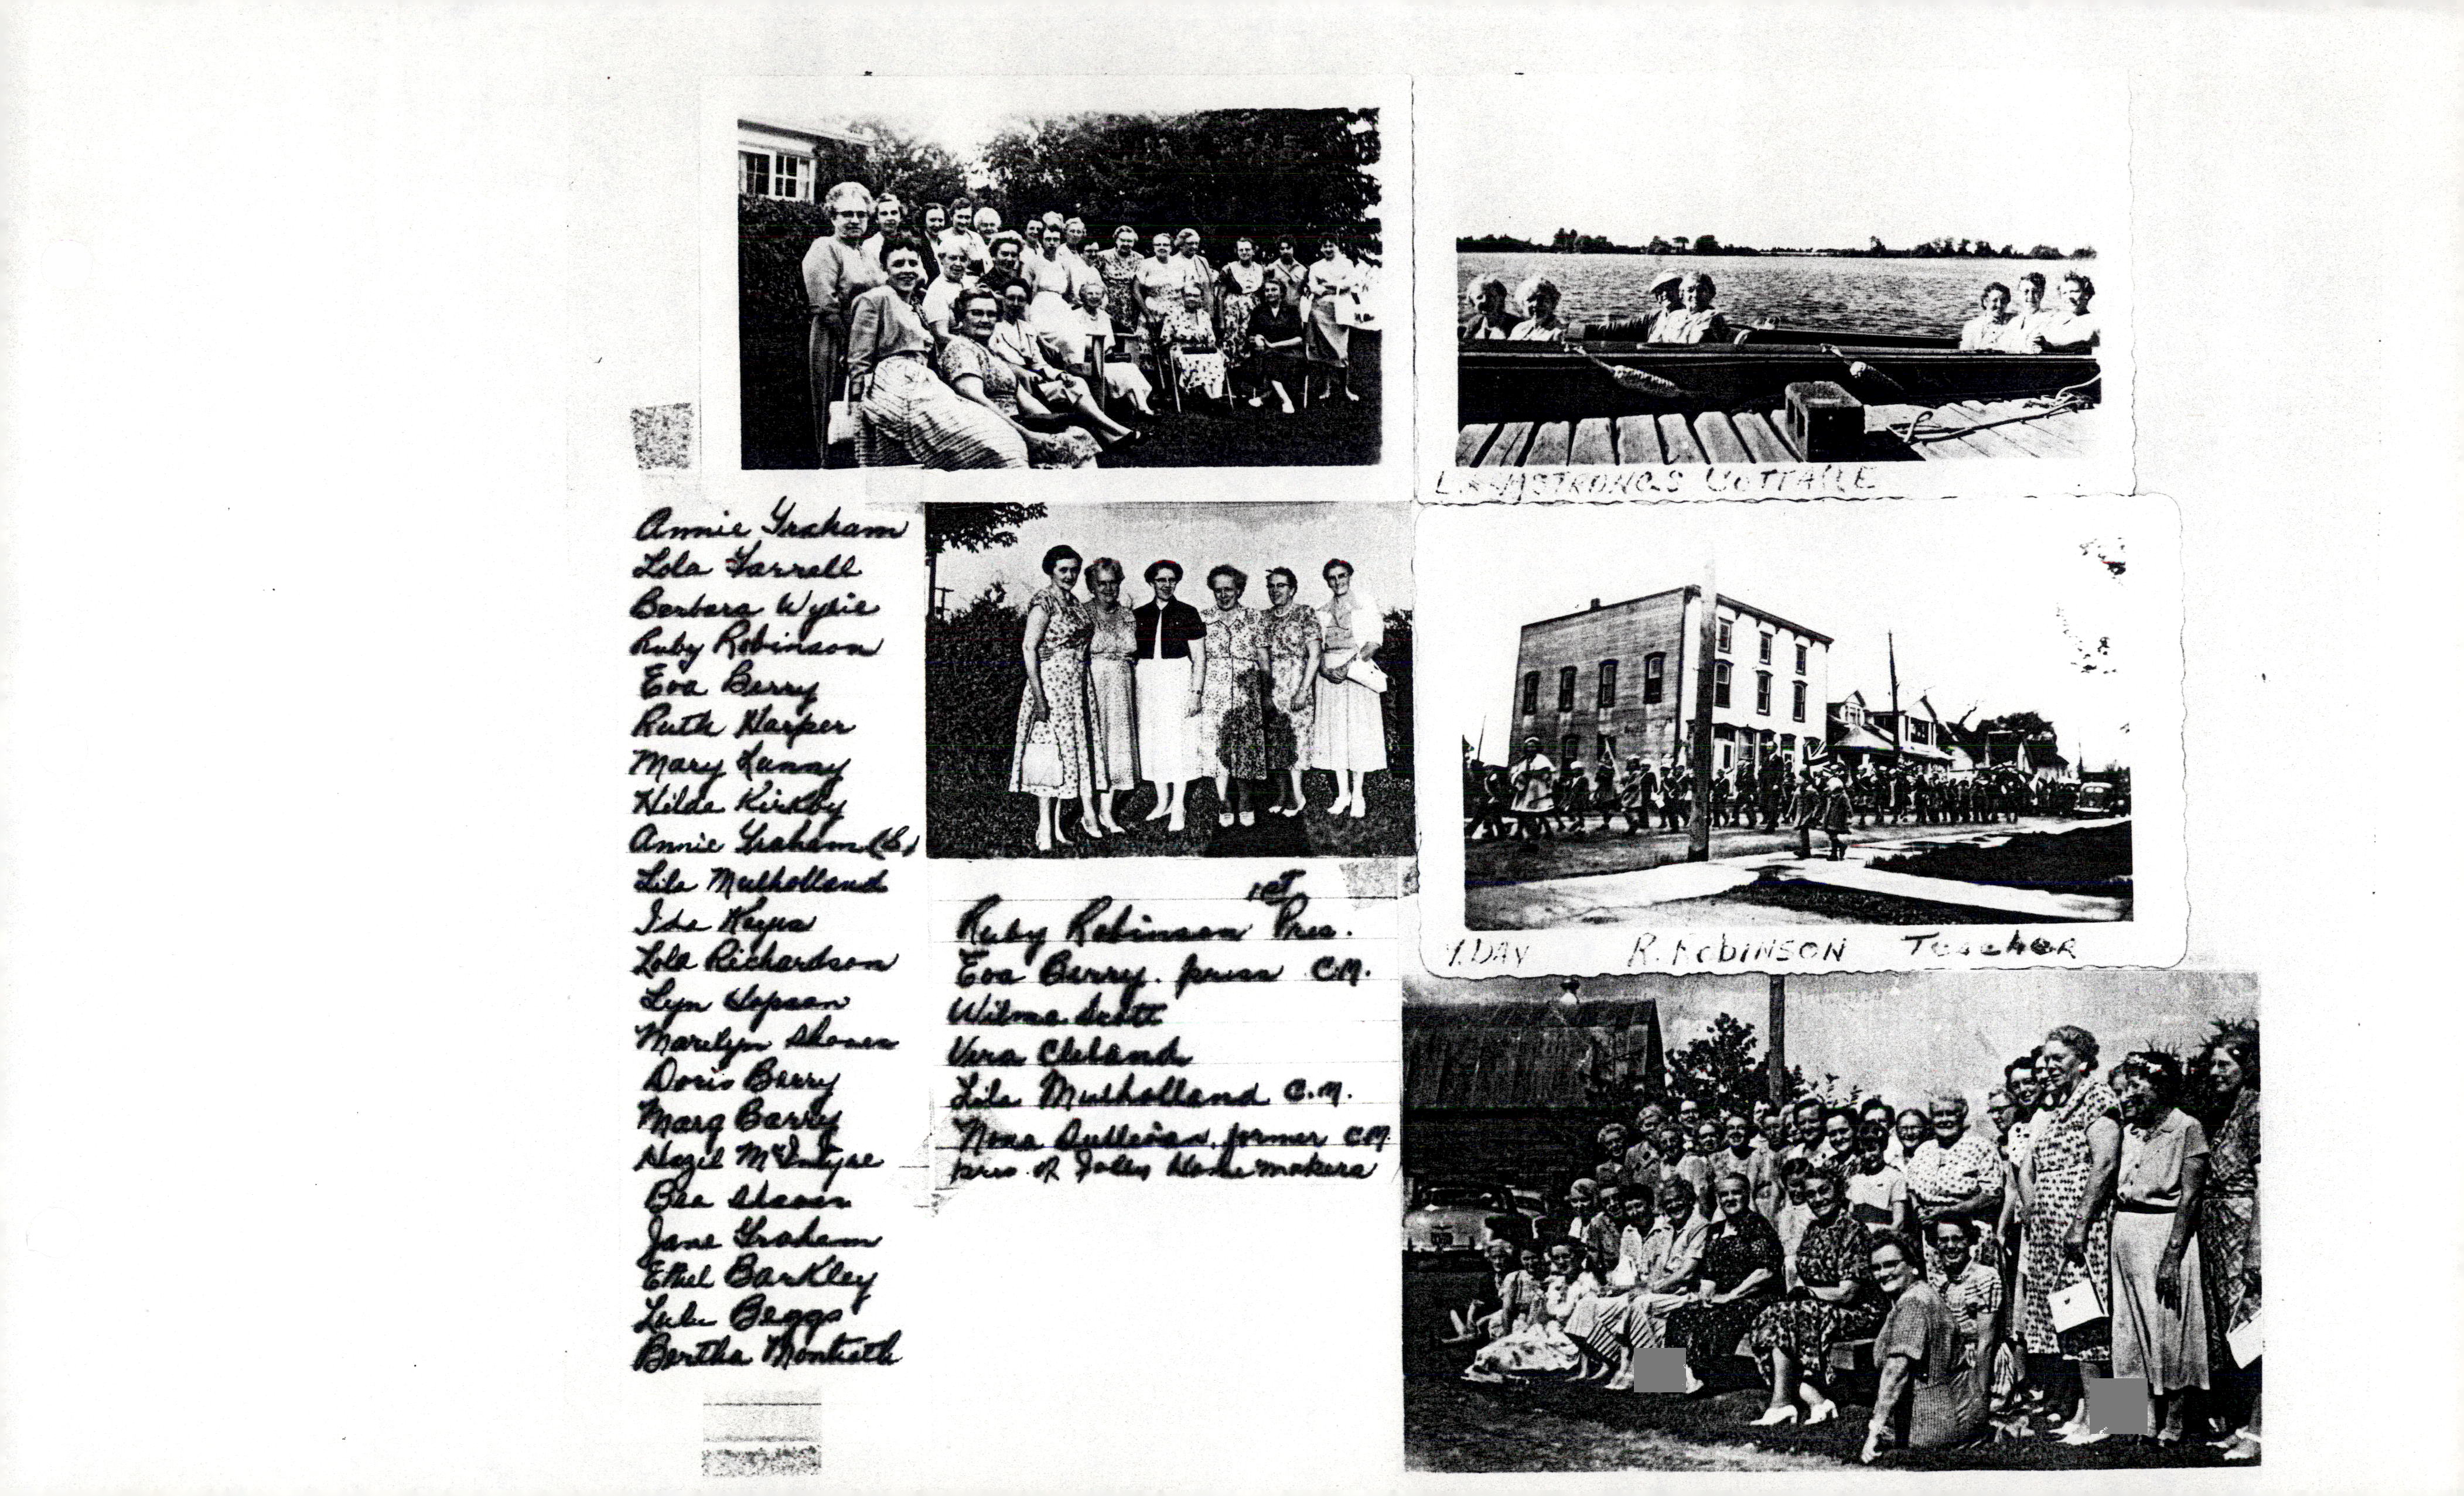 Annie Graham
Lola Farrell
Barbara Wylie
Ruby Robinson
Eva Berry
Ruth Harper
Mary Lunny
Hilda Kirkby
Annie Graham
Lila Mulholland
Ida Keyes
Lola Richardson
Lyn Hopson
Marilyn Shaver
Doris Berry
Marg Barry
Hazel McIntyre
Bea Shaver
Jane Graham
Ethel Barkley
Lulu Beggs
Bertha Monteith
1st
Ruby Robinson Pres.
Eva Berry. press C.M.
Wilma Scott
Vera Cleland
Lila Mulholland C.M.
Nona Sullivan, former C.M.
pres. of Jolly Homemakers
L. ARMSTRONGS COTTAGE
V. DAY R. ROBINSON TEACHER